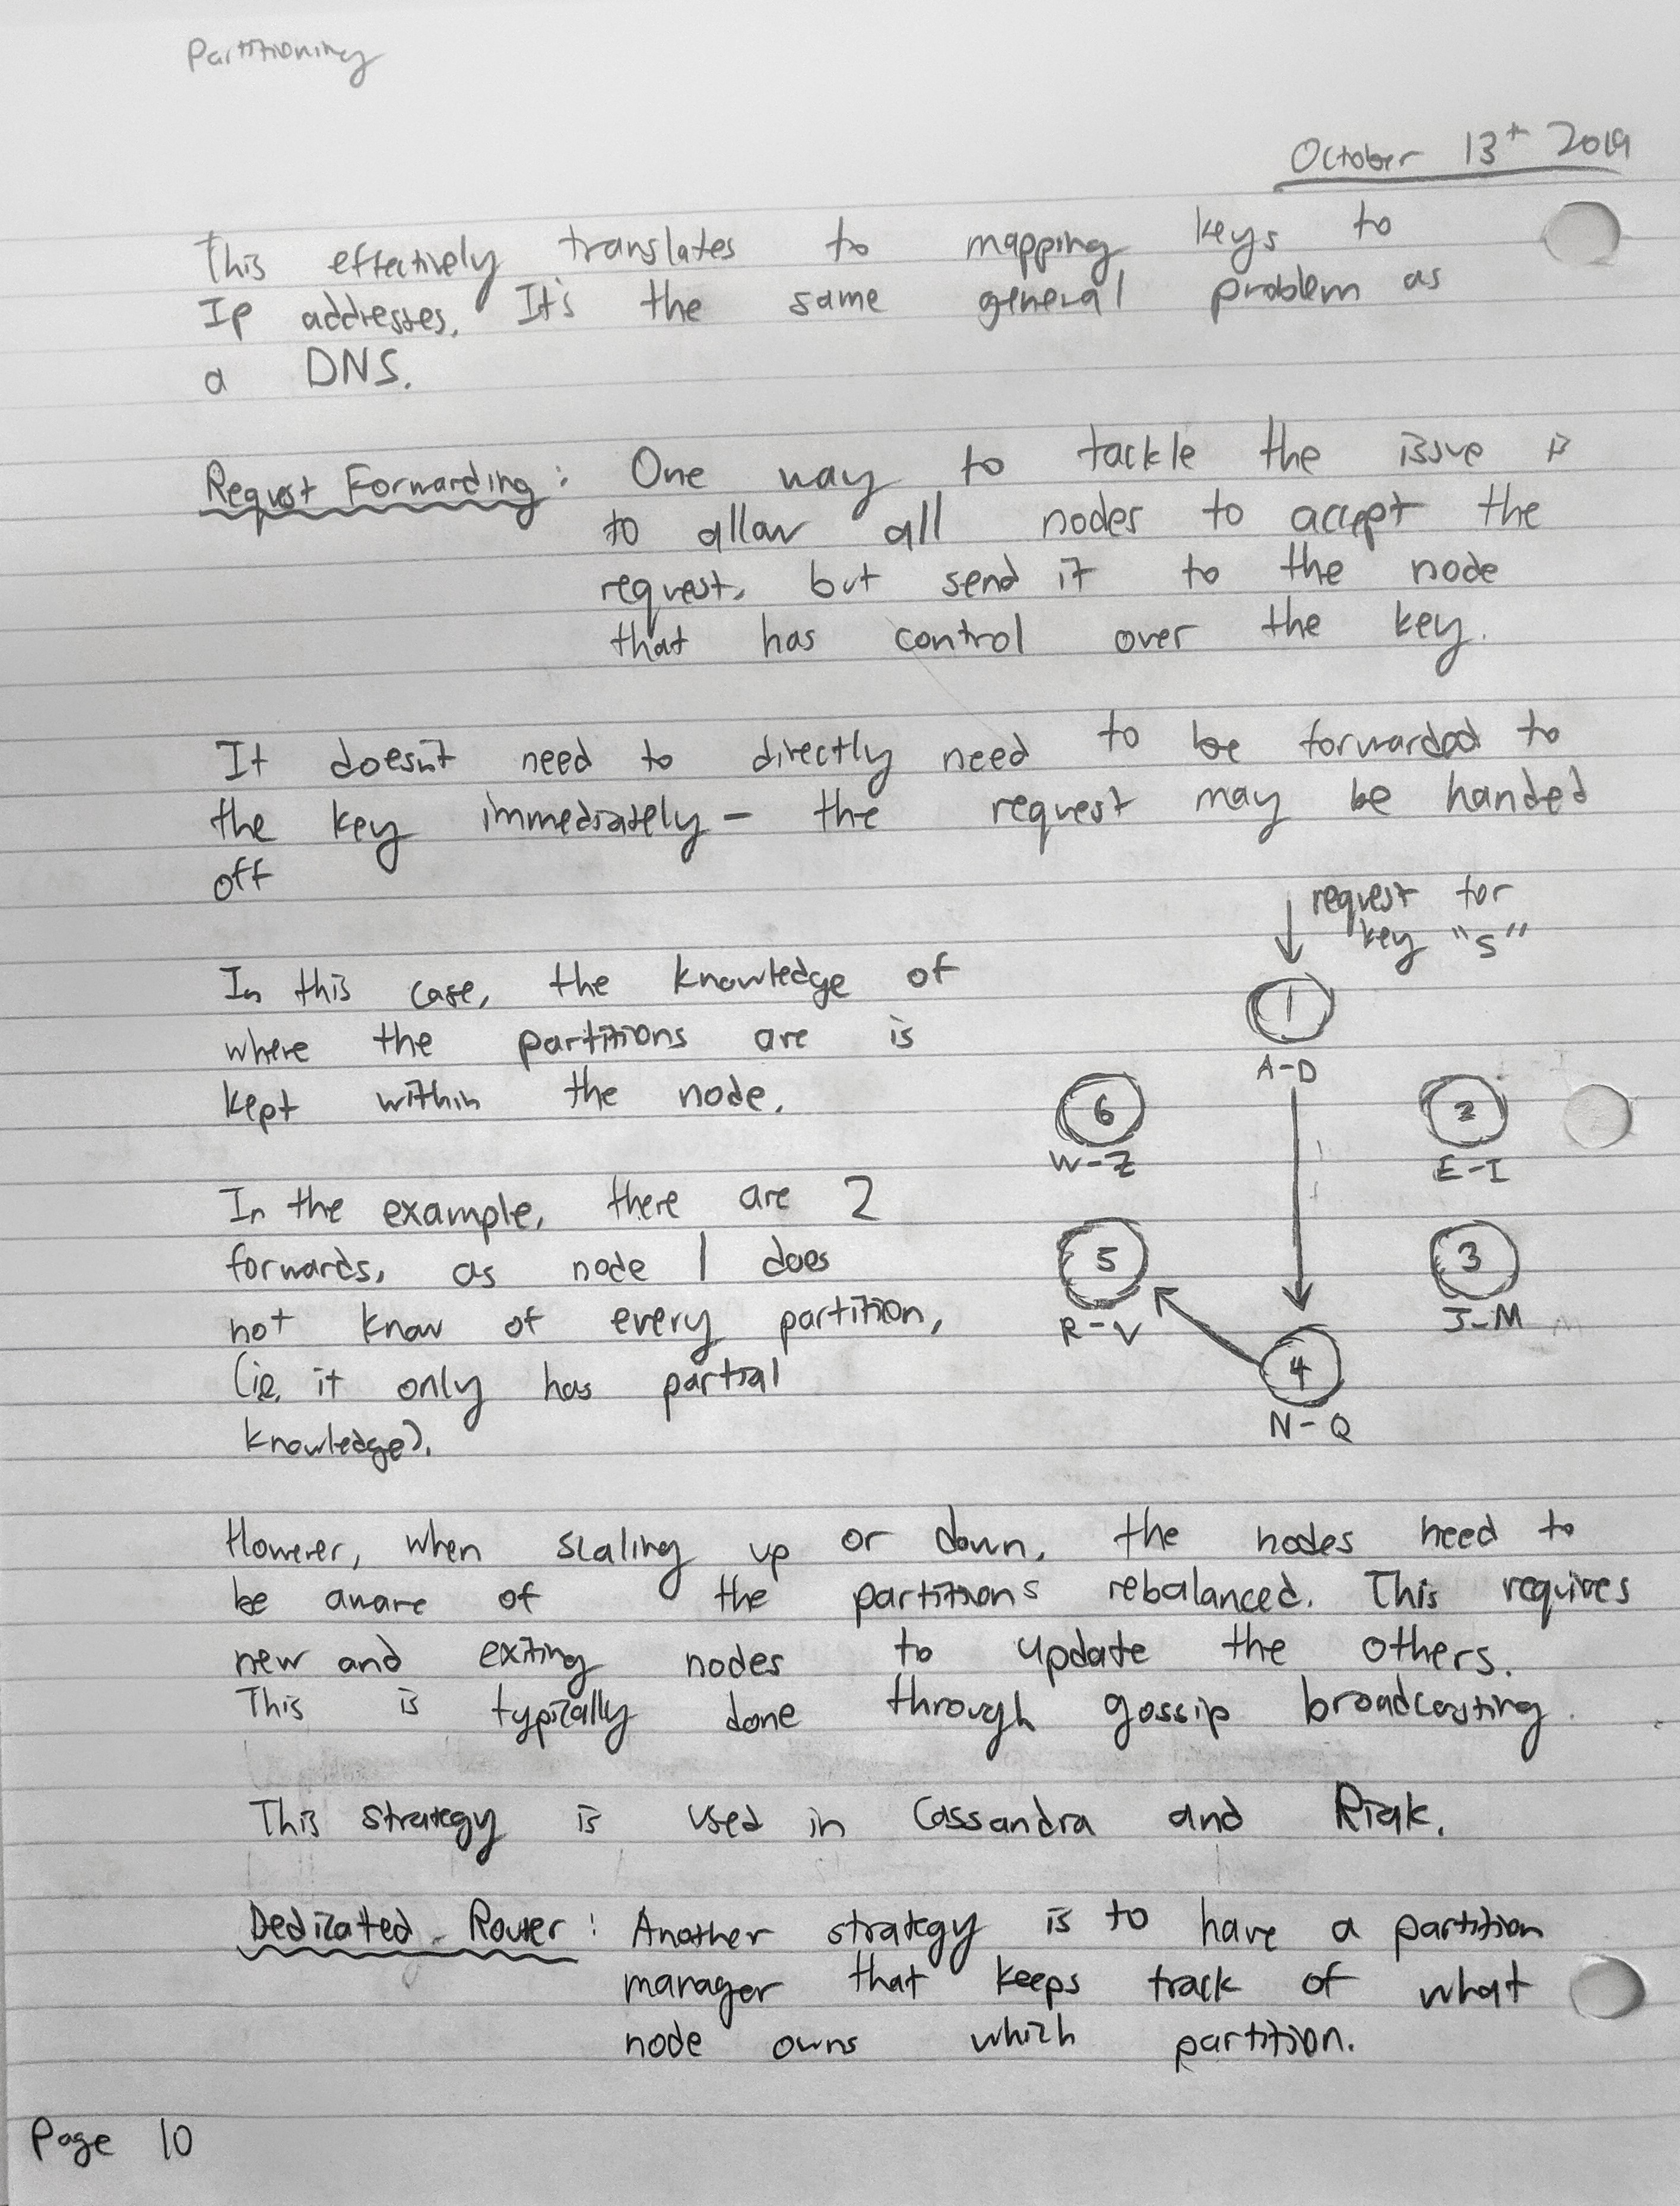 Partitioning
October 13th 2019
This effectively translates to mapping keys to
IP addresses. It's the same general problem as
a DNS.
Request Forwarding: One way to tackle the issue is
to allow all nodes to accept the
request, but send it to the node
that has control over the key.
It doesn't need to directly need to be forwarded to
the key immediately - the request may be handed
off
request for
key "S"
In this case, the knowledge of
where the partitions are is
kept within the node.
In the example, there are 2
forwards, as node 1 does
not know of every partition,
(ie. it only has partial
knowledge).
1
A-D
6
W-Z
2
E-I
5
R-V
3
J-M
4
N-Q
However, when scaling up or down, the nodes need to
be aware of the partitions rebalanced. This requires
new and exiting nodes to update the others.
This is typically done through gossip broadcasting.
This strategy is used in Cassandra and Riak.
Dedicated Router: Another strategy is to have a partition
manager that keeps track of what
node owns which partition.
Page 10